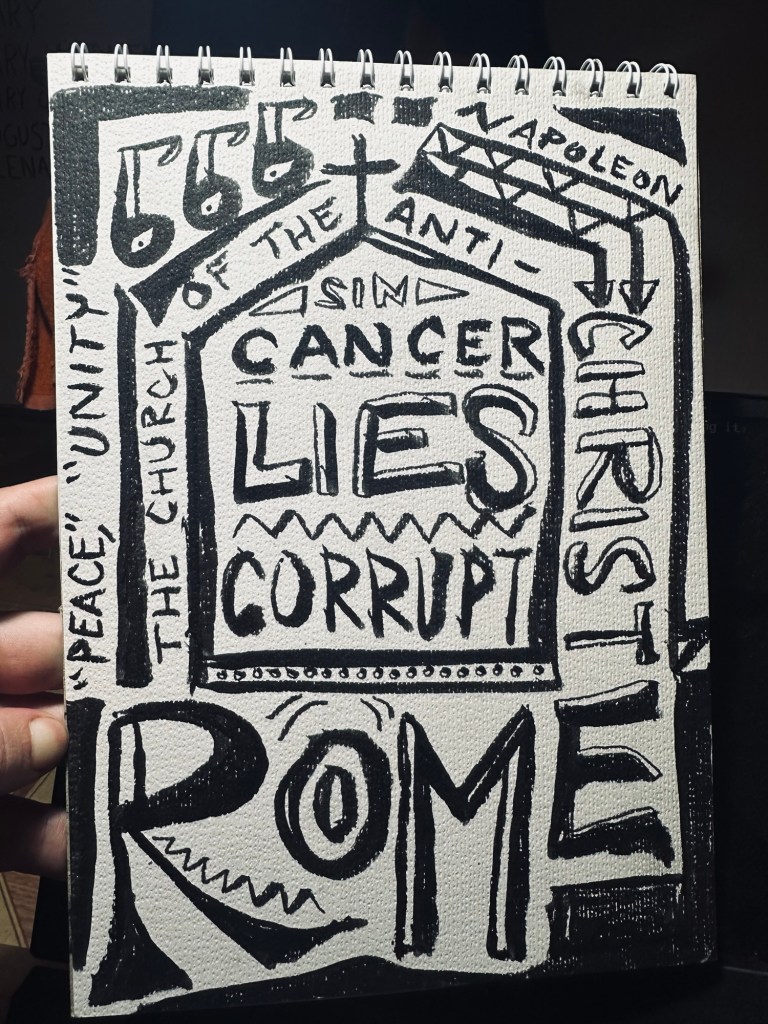 666
NAPOLEON
"PEACE," "UNITY"
THE CHURCH
OF THE ANTI-
CHRIST
SIN
CANCER
LIES
CORRUPT
ROME